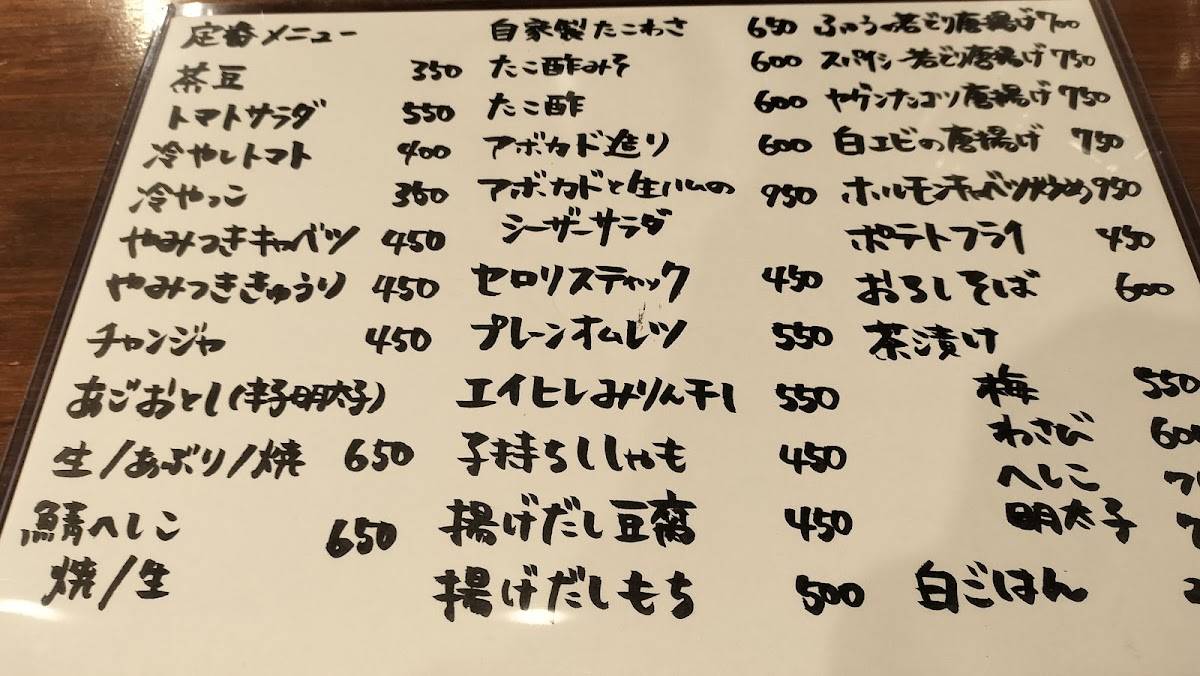 定番メニュー
茶豆 350
トマトサラダ 550
冷やしトマト 400
冷やっこ 350
やみつきキャベツ 450
やみつききゅうり 450
チャンジャ 450
あごおとし(辛子明太子)
生/あぶり/焼 650
鯖へしこ 650
焼/生
自家製たこわさ 650
たこ酢みそ 600
たこ酢 600
アボカド造り 600
アボカドと生ハムの 950
シーザーサラダ
セロリスティック 450
プレーンオムレツ 550
エイヒレみりん干し 550
子持ちししゃも 450
揚げだし豆腐 450
揚げだしもち 500
ふゅうの若どり唐揚げ 700
スパイシー若どり唐揚げ 750
ヤゲンナンコツ唐揚げ 750
白エビの唐揚げ 750
ホルモンキャベツ炒め 950
ポテトフライ 450
おろしそば 600
茶漬け
梅 550
わさび 600
へしこ 7
明太子 7
白ごはん